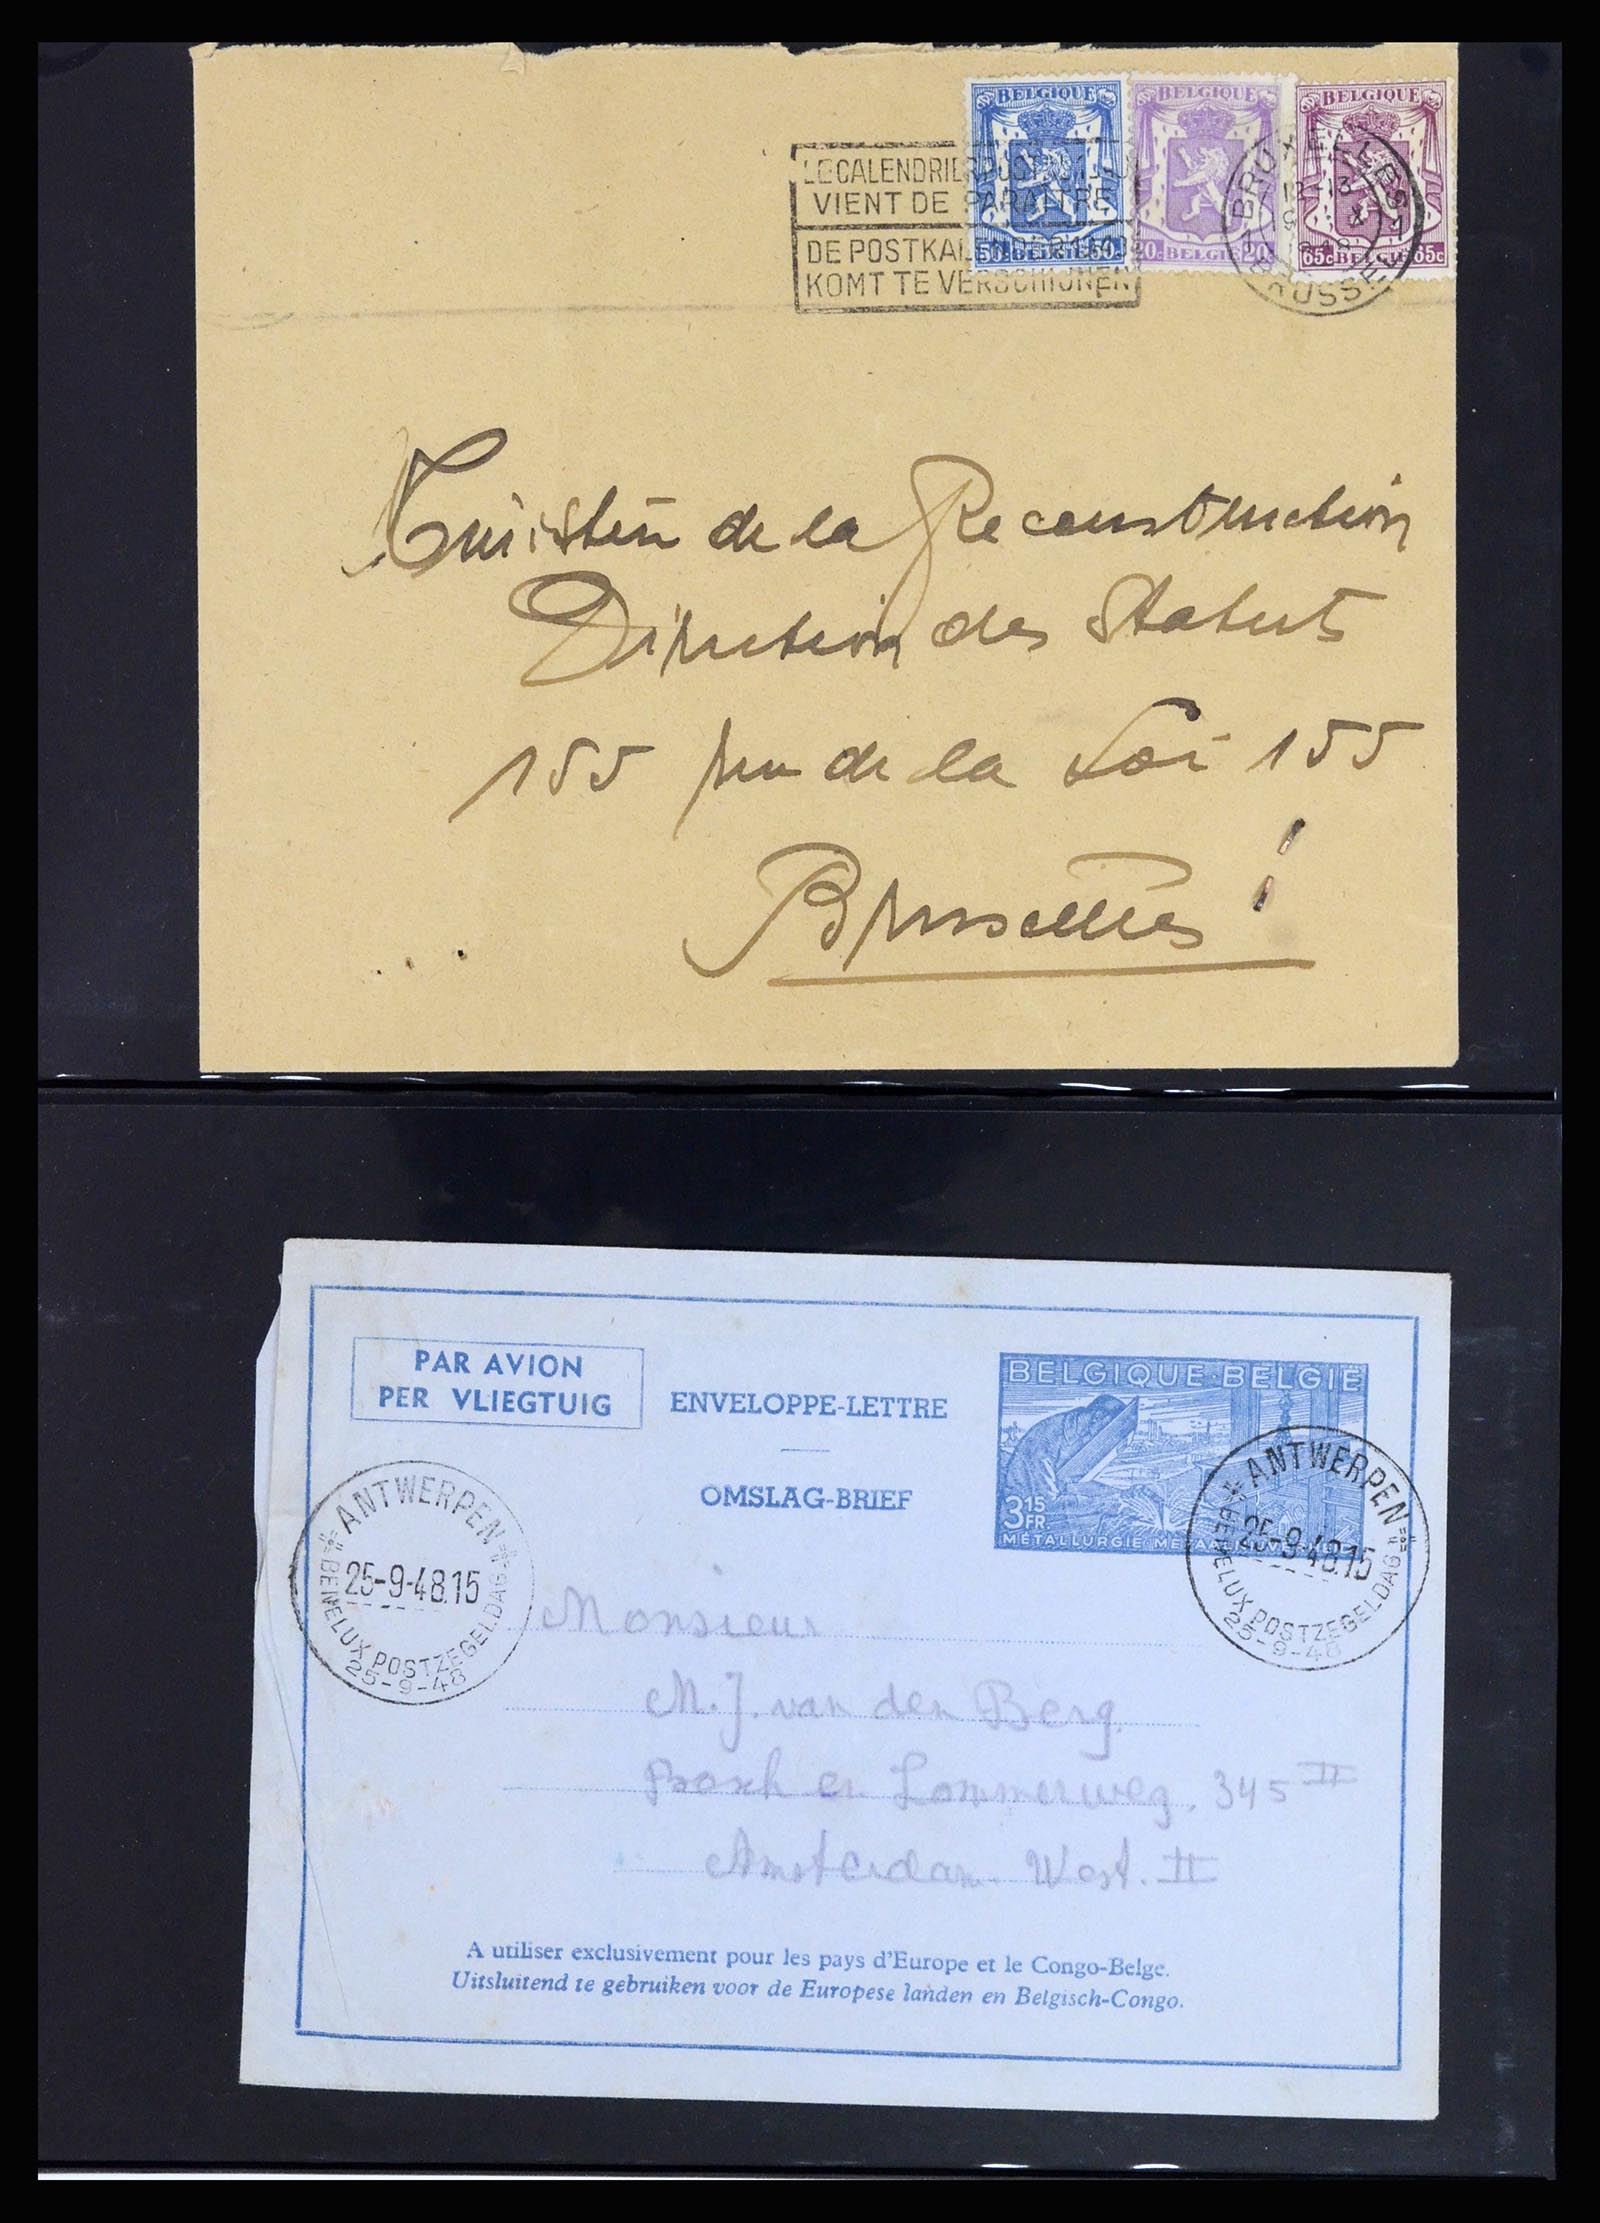 BELGIQUE BELGIQUE BELGIQUE
LE CALENDRIER POSTAL
VIENT DE PARAITRE
DE POSTKALENDER
KOMT TE VERSCHIJNEN
50c BELGIE 50c 20c BELGIE 20c 65c BELGIE 65c
BRUXELLES
12-13
BRUSSEL
Ministère de la Reconstruction
Direction des Statuts
155 rue de la Loi 155
Bruxelles
PAR AVION
PER VLIEGTUIG
ENVELOPPE-LETTRE
OMSLAG-BRIEF
BELGIQUE-BELGIE
3 15 FR.
METALLURGIE-
ANTWERPEN
25-9-48.15
BENELUX POSTZEGELDAG
25-9-48
ANTWERPEN
25-9-48.15
BENELUX POSTZEGELDAG
25-9-48
Monsieur
M.J. van den Berg.
en Lommerweg. 345 II
Amsterdam. West. II
A utiliser exclusivement pour les pays d'Europe et le Congo-Belge.
Uitsluitend te gebruiken voor de Europese landen en Belgisch-Congo.